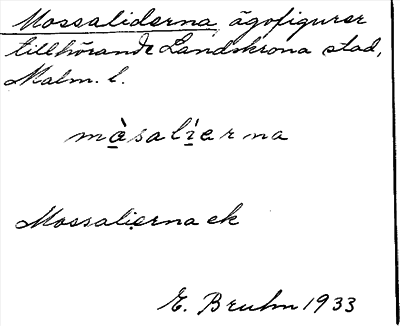 Mossaliderna, ägofigurer
tillhörande Landskrona stad,
Malm. l.
màsalíerna
Mossalierna ek
E. Bruhn 1933